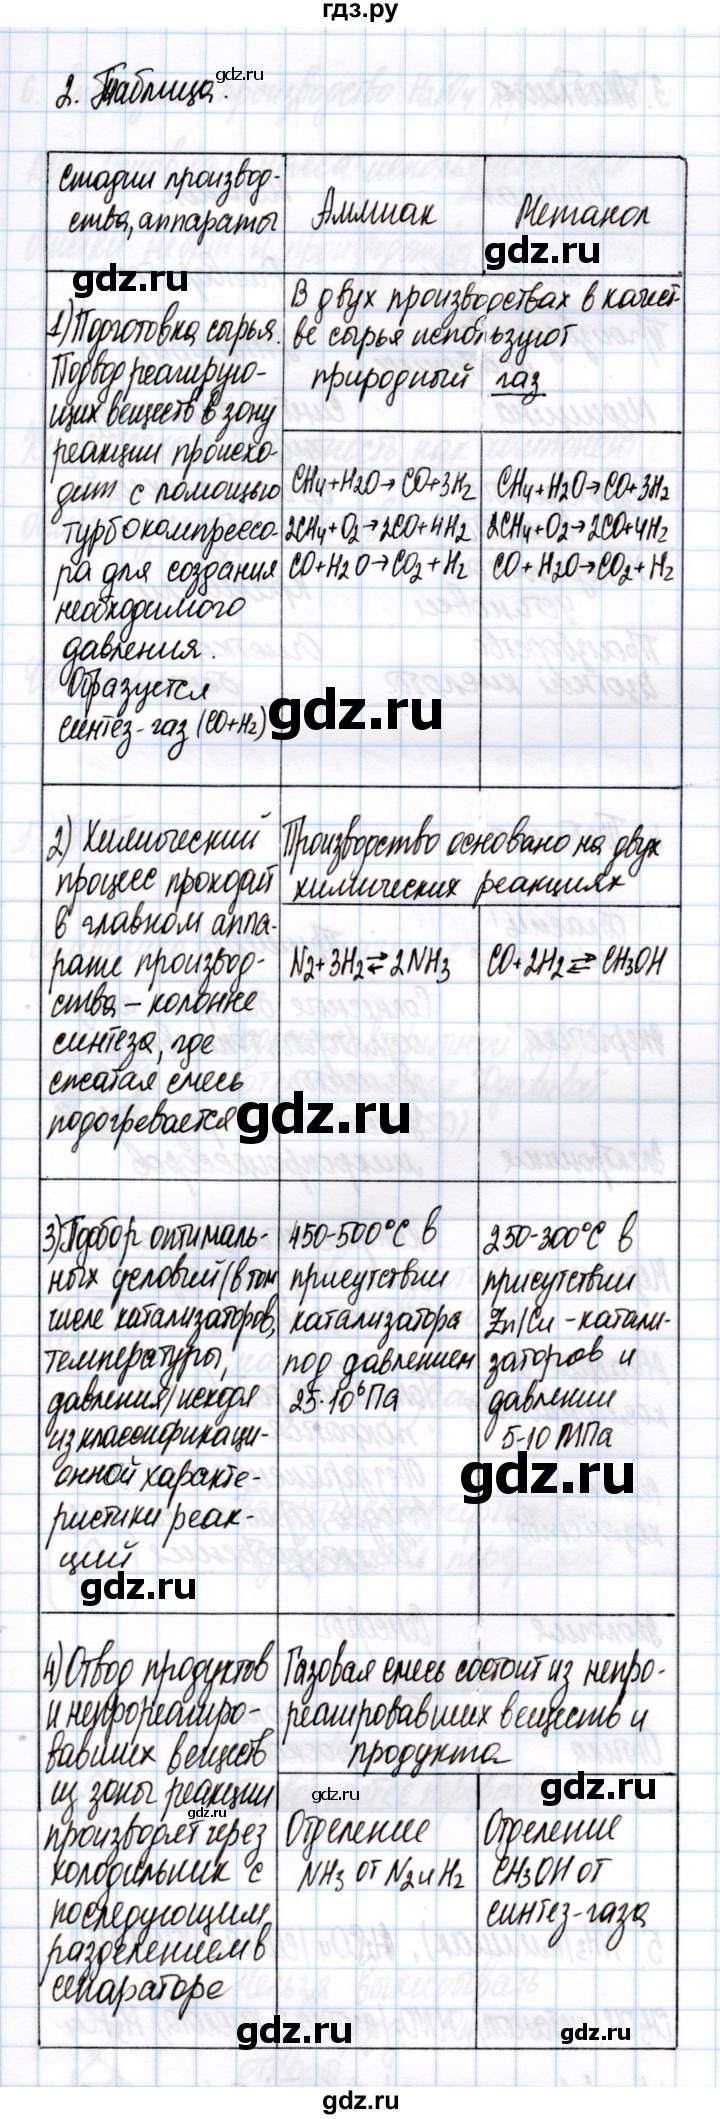 гдз.ру
gdz.ru
2. Таблица.
стадии производ-
ства, аппараты
Аммиак
Метанол
gdz.ru
gdz.ru
1) Подготовка сырья.
Подвод реагирую-
щих веществ в зону
реакции происхо-
дит с помощью
турбокомпрессо-
ра для создания
необходимого
давления.
Образуется
синтез-газ (CO+H2)
В двух производствах в качест-
ве сырья используют
природный газ
CH4+H2O→CO+3H2
2CH4+O2→2CO+4H2
CO+H2O→CO2+H2
CH4+H2O→CO+3H2
2CH4+O2→2CO+4H2
CO+H2O→CO2+H2
gdz.ru
2) Химический
процесс проходит
в главном аппа-
рате производ-
ства – колонне
синтеза, где
сжатая смесь
подогревается
Производство основано на двух
химических реакциях
N2+3H2⇄2NH3
CO+2H2⇄CH3OH
gdz.ru
3) Подбор оптималь-
ных условий (в том
числе катализаторов,
температуры,
давления) исходя
из классификаци-
онной характе-
ристики реак-
ций
450-500°C в
присутствии
катализатора
под давлением
25·10⁶Па
250-300°C в
присутствии
Zn/Cu -катали-
заторов и
давлении
5-10 МПа
gdz.ru
gdz.ru
4) Отвод продуктов
и непрореагиро-
вавших веществ
из зоны реакции
производят через
холодильник с
последующим
разделением в
сепараторе
Газовая смесь состоит из непро-
реагировавших веществ и
продукта
gdz.ru
gdz.ru
gdz.ru
Отделение
NH3 от N2 и H2
Отделение
CH3OH от
синтез-газа
gdz.ru
gdz.ru
gdz.ru